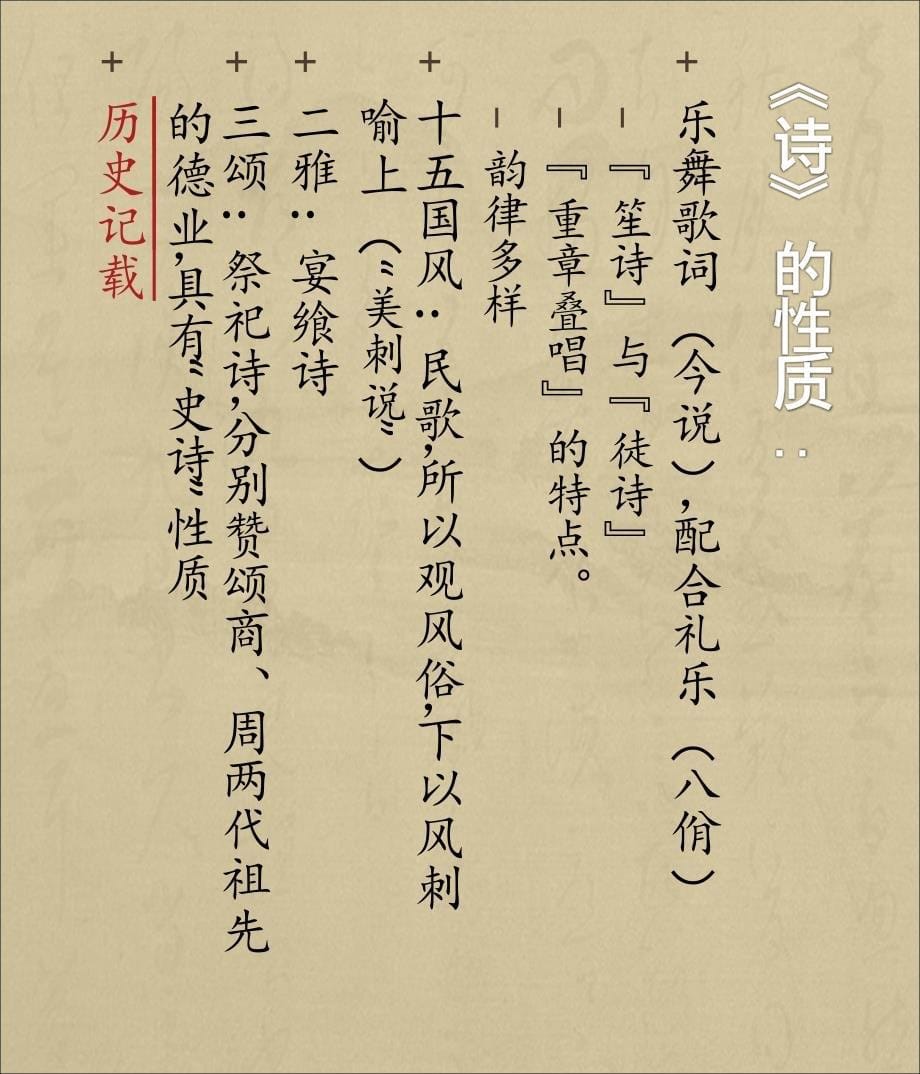 《诗》的性质：
+ 乐舞歌词（今说），配合礼乐（八佾）
– 『笙诗』与『徒诗』
– 『重章叠唱』的特点。
– 韵律多样
+ 十五国风：民歌，所以观风俗，下以风刺
喻上（“美刺说”）
+ 二雅：宴飨诗
+ 三颂：祭祀诗，分别赞颂商、周两代祖先
的德业，具有“史诗”性质
+ 历史记载